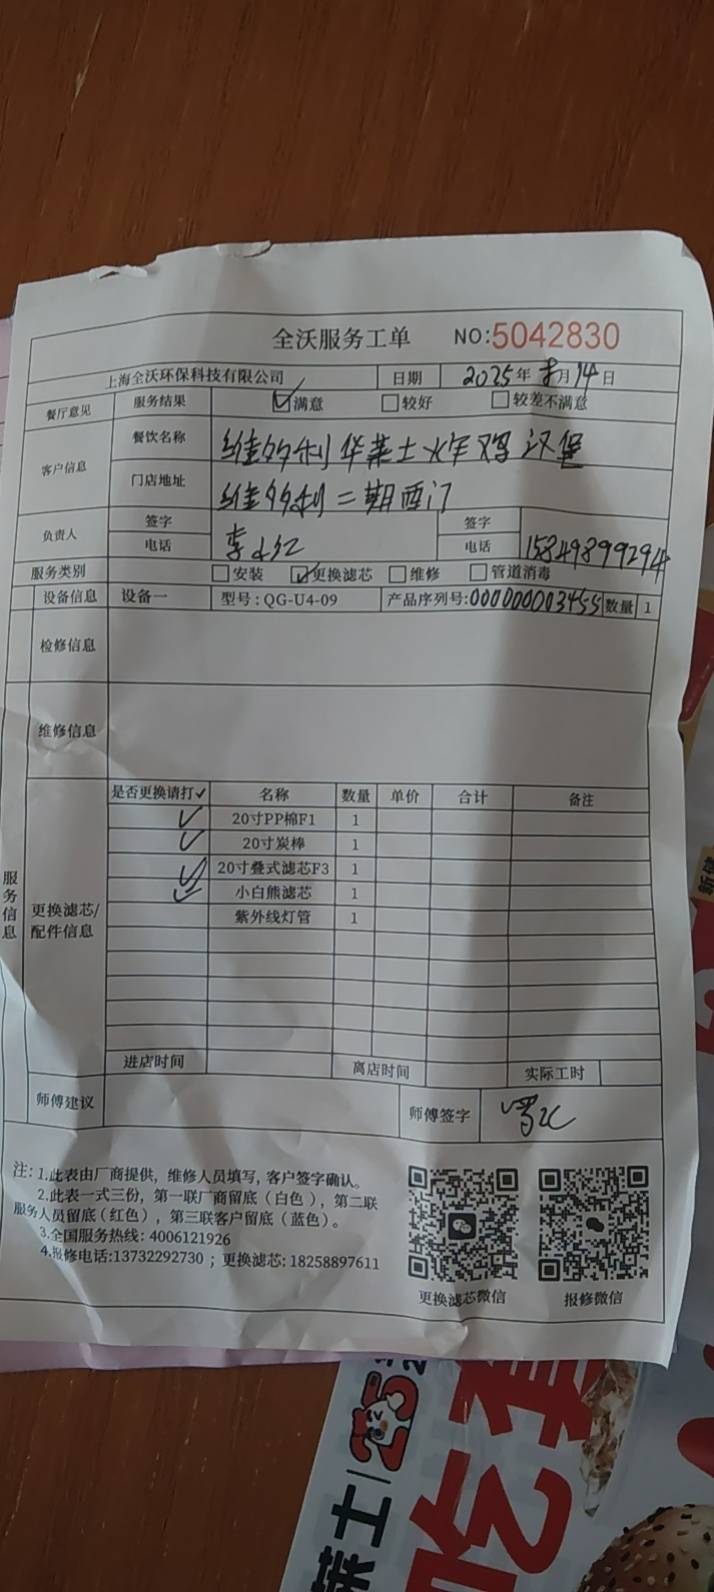 全沃服务工单 NO:5042830
上海全沃环保科技有限公司 日期 2025年8月14日
餐厅意见 服务结果 ☑满意 □较好 □较差不满意
客户信息 餐饮名称 维多利华莱士炸鸡汉堡
门店地址 维多利二期西门
负责人 签字 签字
电话 电话 15849899294
服务类别 □安装 ☑更换滤芯 □维修 □管道消毒
设备信息 设备一 型号:QG-U4-09 产品序列号:000000003455 数量 1
检修信息
维修信息
服务信息
更换滤芯/配件信息
是否更换请打✓ 名称 数量 单价 合计 备注
✓ 20寸PP棉F1 1
✓ 20寸炭棒 1
✓ 20寸叠式滤芯F3 1
✓ 小白熊滤芯 1
紫外线灯管 1
进店时间 离店时间 实际工时
师傅建议 师傅签字
注:1.此表由厂商提供,维修人员填写,客户签字确认。
2.此表一式三份,第一联厂商留底(白色),第二联
服务人员留底(红色),第三联客户留底(蓝色)。
3.全国服务热线:4006121926
4.报修电话:13732292730;更换滤芯:18258897611
更换滤芯微信 报修微信
莱士 25
吃